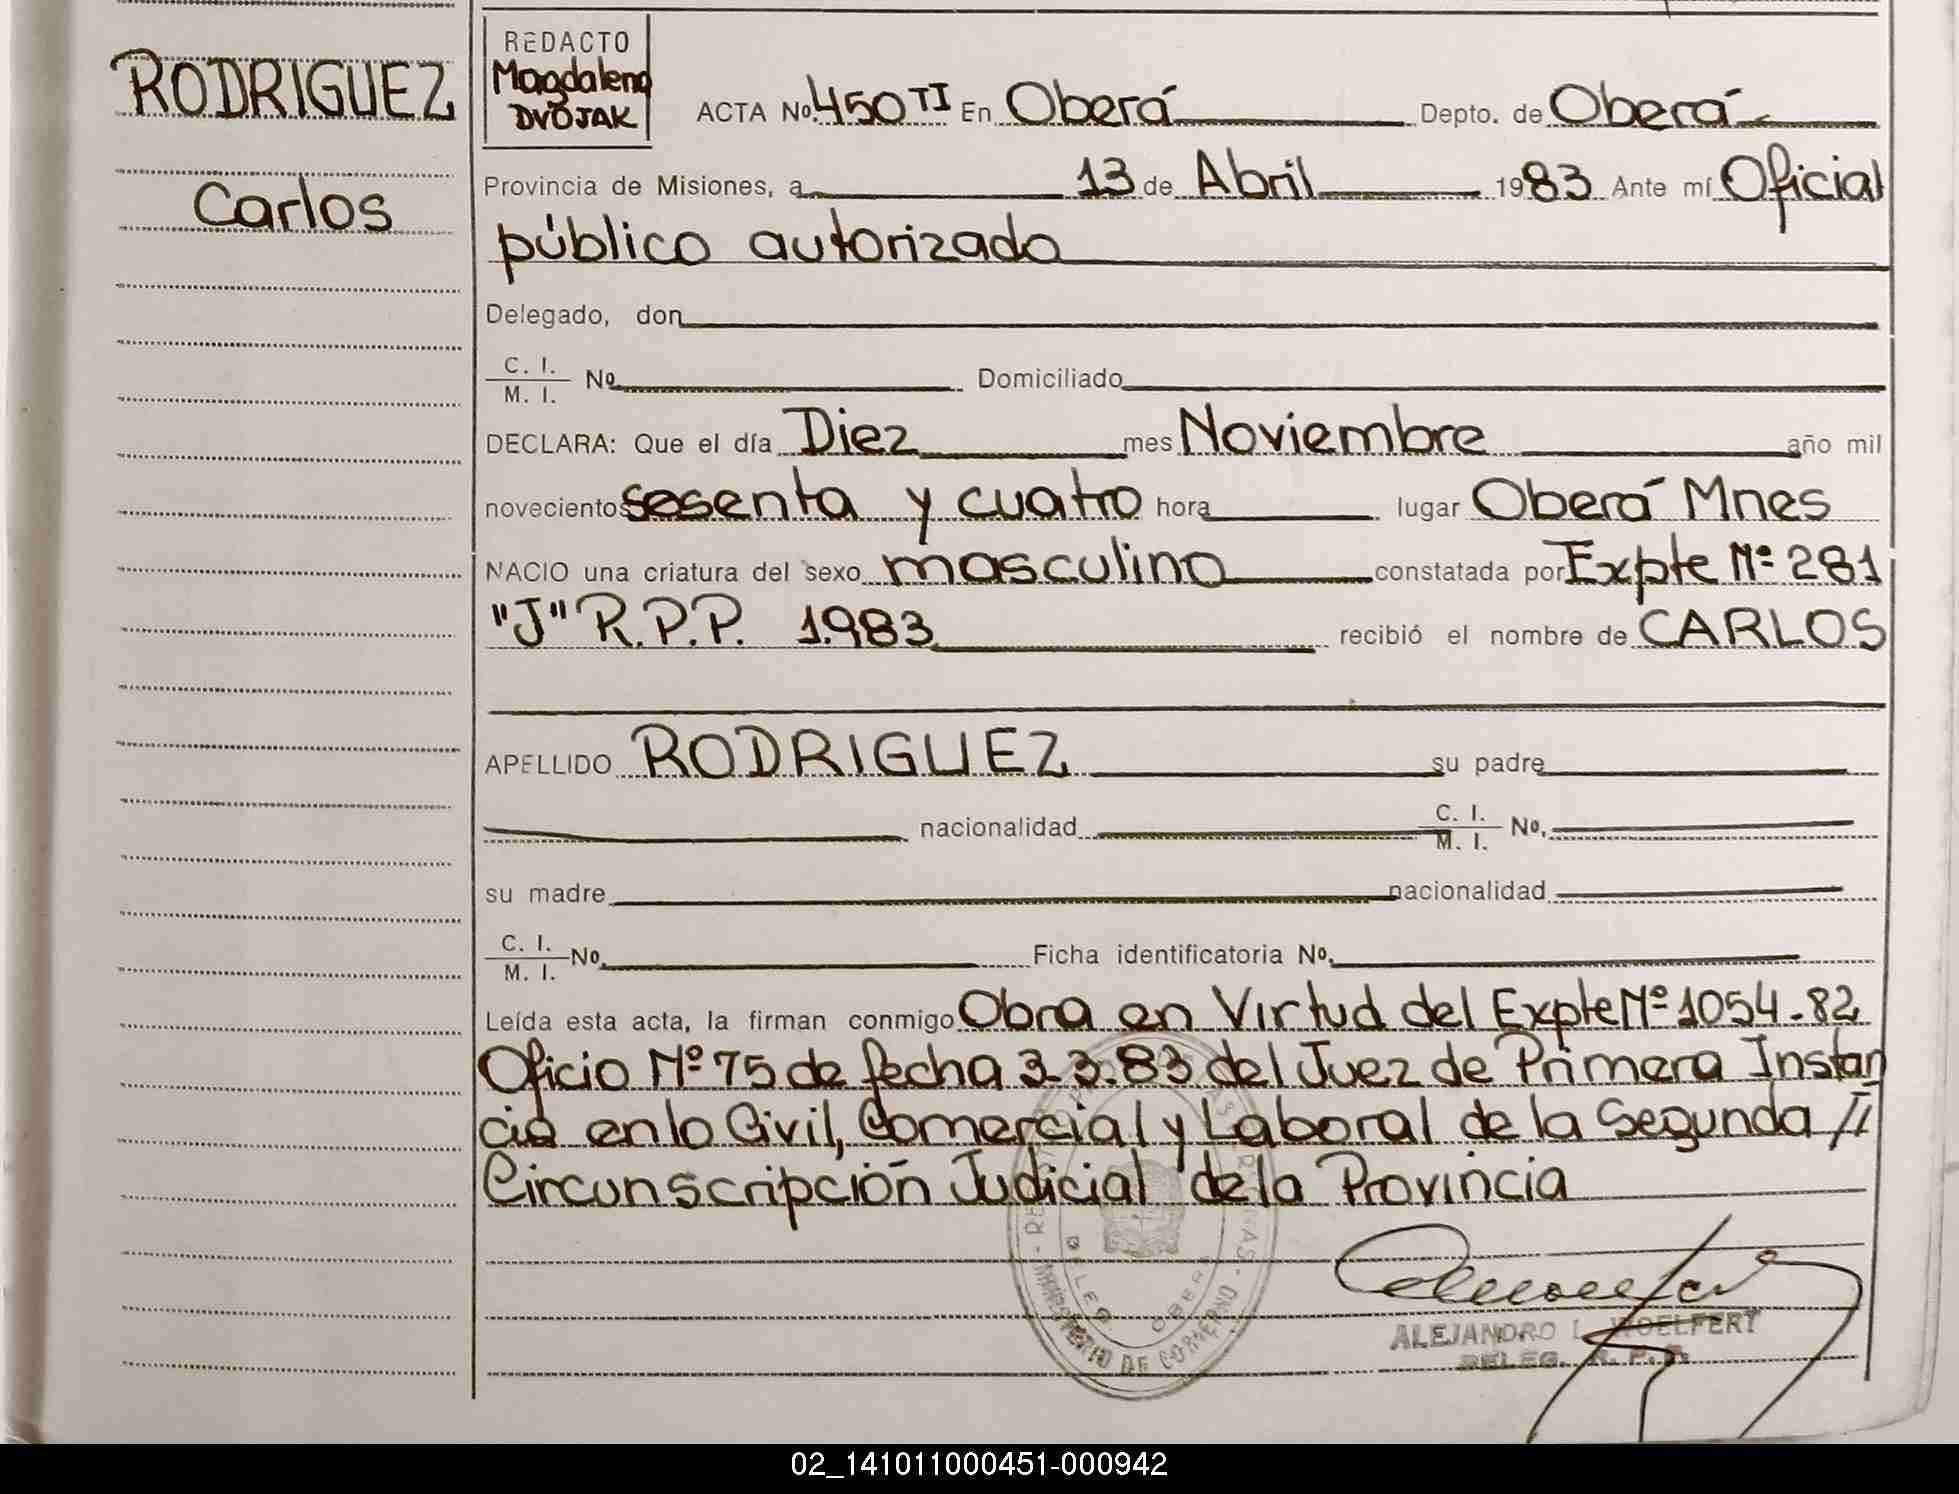 RODRIGUEZ
Carlos
REDACTO
Magdalena
DVOJAK
ACTA No. 450 TI En Oberá Depto. de Oberá
Provincia de Misiones, a 13 de Abril 1983 Ante mí Oficial
público autorizado
Delegado, don
C. I.
M. I. No. Domiciliado
DECLARA: Que el día Diez mes Noviembre año mil
novecientos sesenta y cuatro hora lugar Oberá Mnes
NACIO una criatura del sexo masculino constatada por Expte Nº 281
"J" R.P.P. 1.983 recibió el nombre de CARLOS
APELLIDO RODRIGUEZ su padre
nacionalidad C. I.
M. I. No.
su madre nacionalidad
C. I.
M. I. No. Ficha identificatoria No.
Leída esta acta, la firman conmigo Obra en Virtud del Expte Nº 1054-82
Oficio Nº 75 de fecha 3.3.83 del Juez de Primera Instan
cia en lo Civil, Comercial y Laboral de la Segunda //
Circunscripción Judicial de la Provincia
MINISTERIO DE GOBIERNO
ALEJANDRO L. WOELFERT
DELEG. R. P. P.
02_141011000451-000942